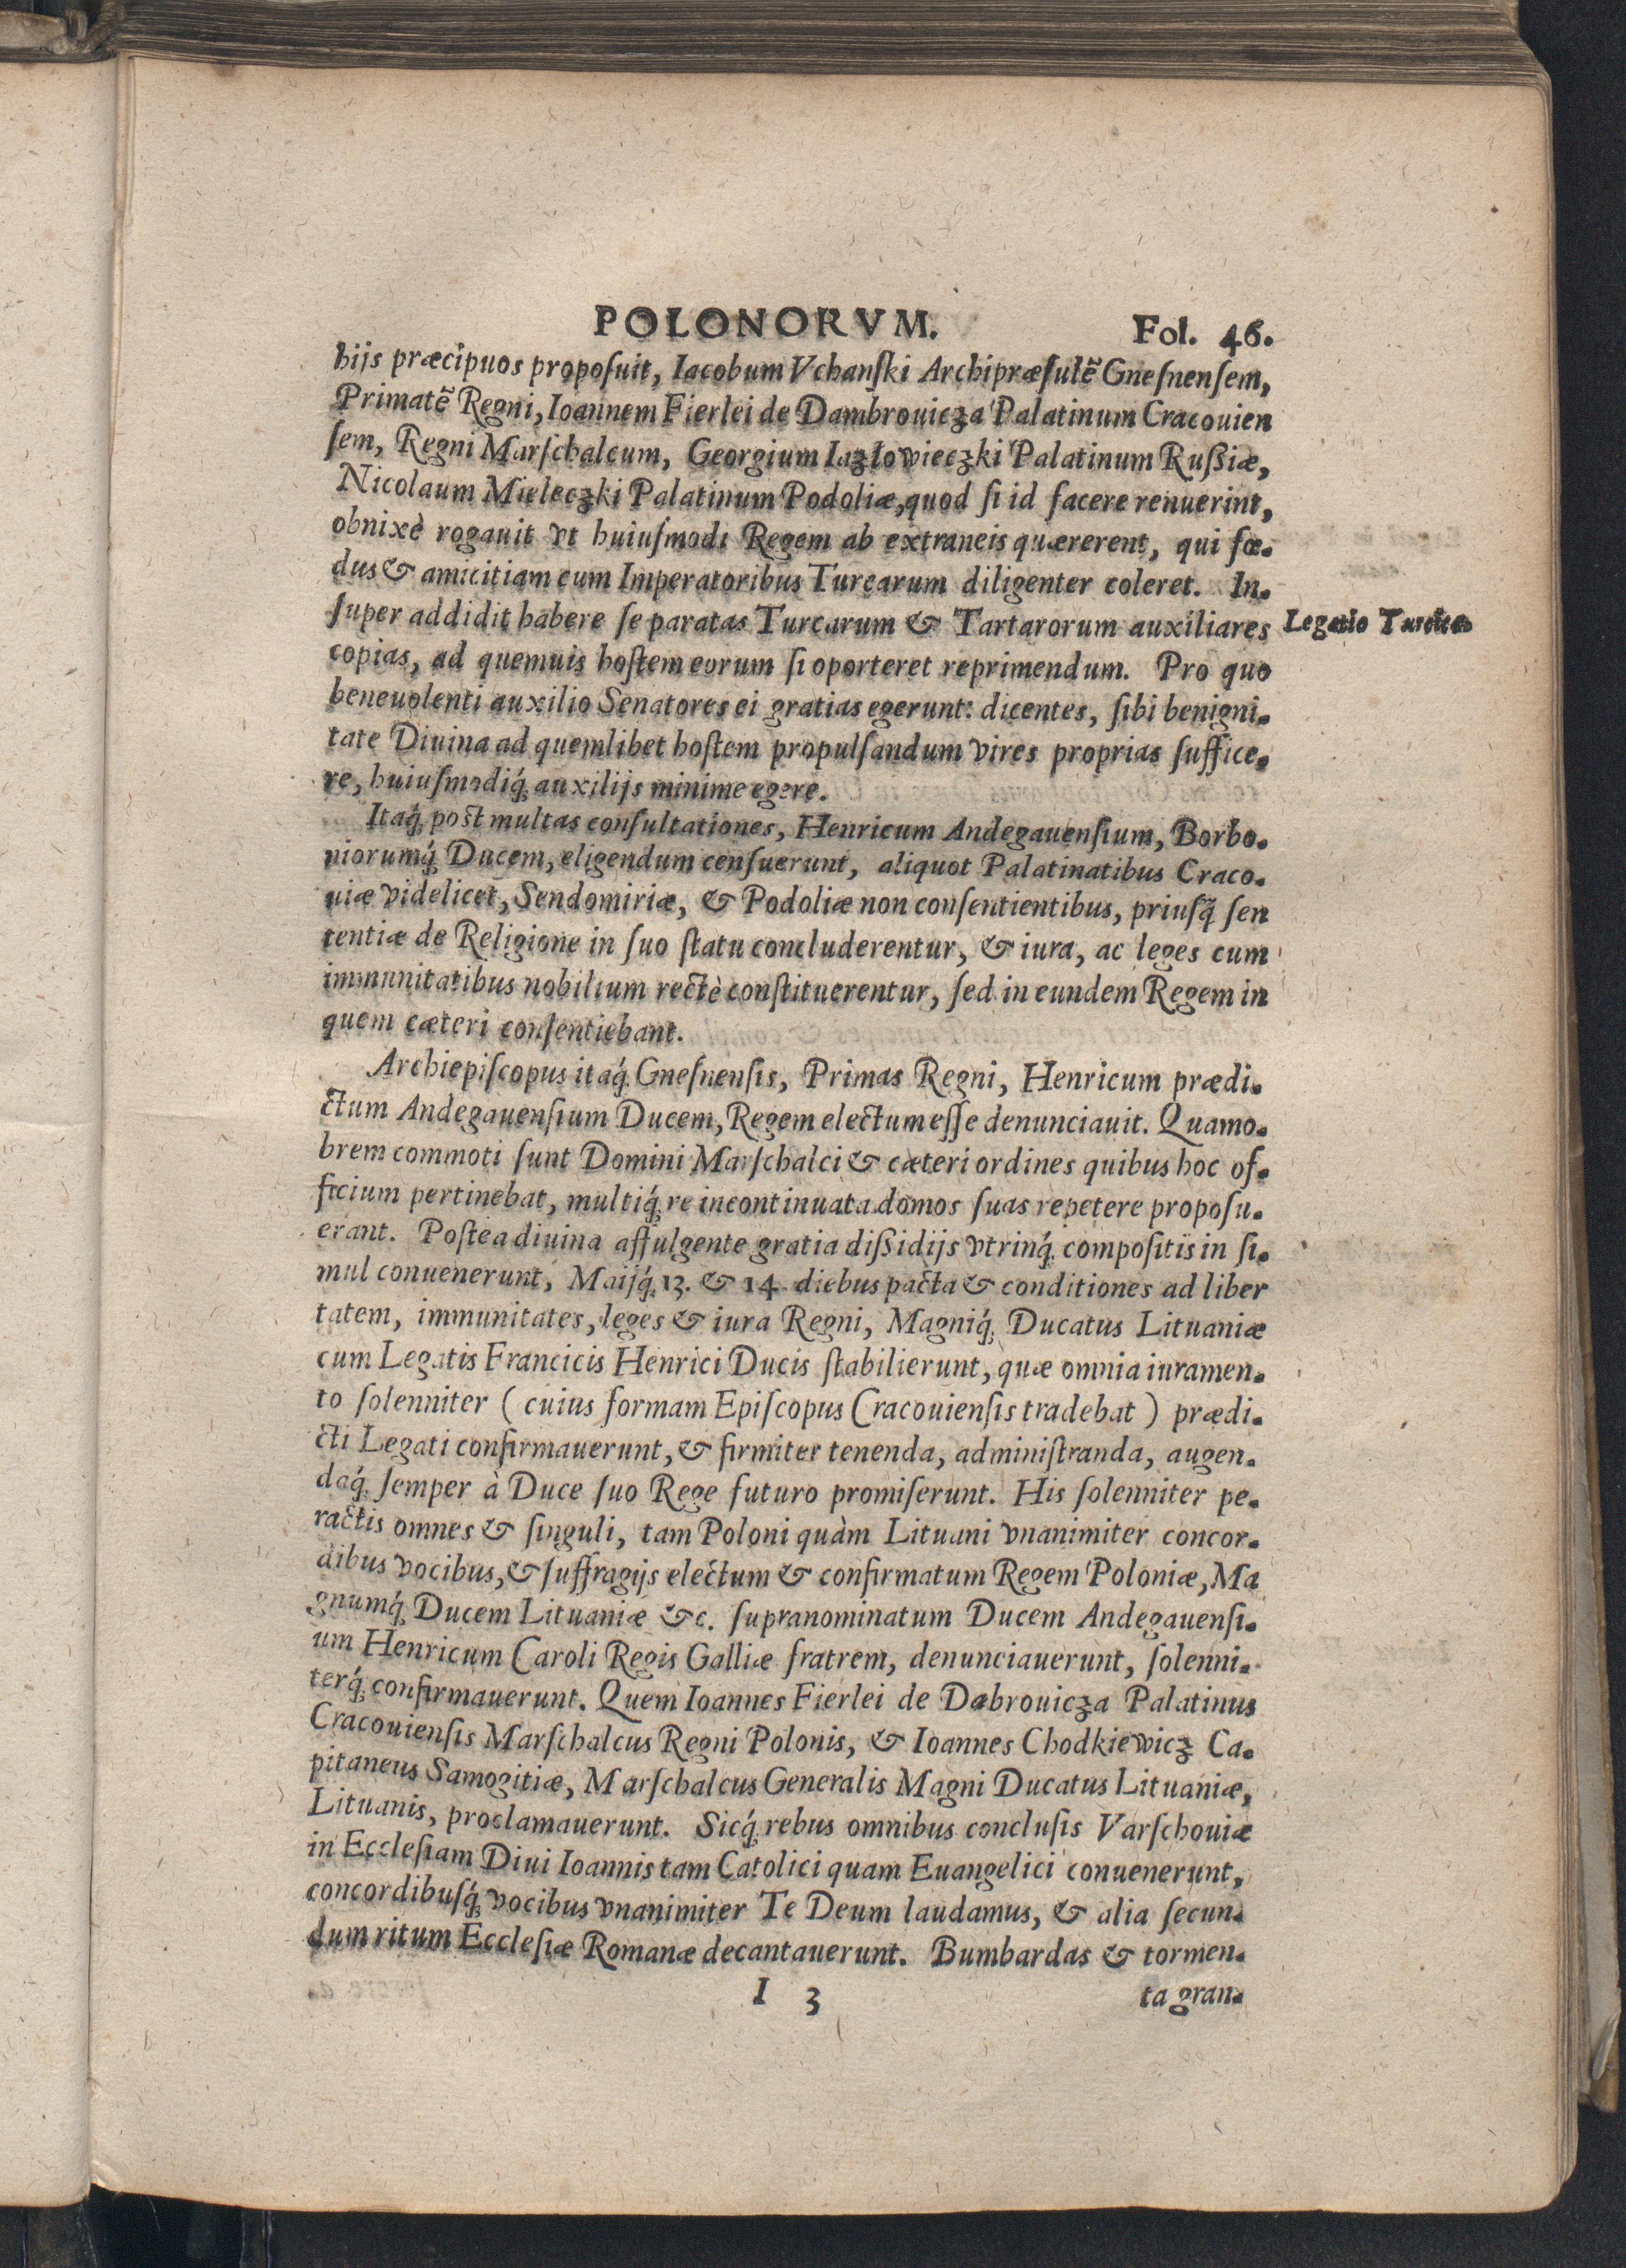 POLONORVM. Fol. 46.
hijs præcipuos proposuit, Iacobum Vchanſki Archipræſulẽ Gneſnenſem,
Primatẽ Regni, Ioannem Fierlei de Dambrouicza Palatinum Cracouien
ſem, Regni Marſchalcum, Georgium Iazłowieczki Palatinum Rußiæ,
Nicolaum Mieleczki Palatinum Podoliæ, quod ſi id facere renuerint,
obnixè rogauit vt huiuſmodi Regem ab extraneis quærerent, qui fœ-
dus & amicitiam cum Imperatoribus Turcarum diligenter coleret. In-
ſuper addidit habere ſe paratas Turcarum & Tartarorum auxiliares
Legatio Turcica
copias, ad quemuis hoſtem eorum ſi oporteret reprimendum. Pro quo
beneuolenti auxilio Senatores ei gratias egerunt: dicentes, ſibi benigni-
tate Diuina ad quemlibet hoſtem propulſandum vires proprias ſuffice-
re, huiuſmodiq́ꝫ auxilijs minime egere.
Itaq́ꝫ poſt multas conſultationes, Henricum Andegauenſium, Borbo-
niorumq́ꝫ Ducem, eligendum cenſuerunt, aliquot Palatinatibus Craco-
uiæ videlicet, Sendomiriæ, & Podoliæ non conſentientibus, priuſq̃ ſen
tentiæ de Religione in ſuo ſtatu concluderentur, & iura, ac leges cum
immunitatibus nobilium rectè conſtituerentur, ſed in eundem Regem in
quem cæteri conſentiebant.
Archiepiſcopus itaq́ꝫ Gneſnenſis, Primas Regni, Henricum prædi-
ctum Andegauenſium Ducem, Regem electum eſſe denunciauit. Quamo-
brem commoti ſunt Domini Marſchalci & cæteri ordines quibus hoc of-
ficium pertinebat, multiq́ꝫ re incontinuata domos ſuas repetere propoſu-
erant. Poſtea diuina affulgente gratia dißidijs vtrinq́ꝫ compoſitis in ſi-
mul conuenerunt, Maijq́ꝫ 13. & 14. diebus pacta & conditiones ad liber
tatem, immunitates, leges & iura Regni, Magniq́ꝫ Ducatus Lituaniæ
cum Legatis Francicis Henrici Ducis ſtabilierunt, quæ omnia iuramen-
to ſolenniter ( cuius formam Epiſcopus Cracouienſis tradebat ) prædi-
cti Legati confirmauerunt, & firmiter tenenda, adminiſtranda, augen-
daq́ꝫ ſemper à Duce ſuo Rege futuro promiſerunt. His ſolenniter pe-
ractis omnes & ſinguli, tam Poloni quàm Lituani vnanimiter concor-
dibus vocibus, & ſuffragijs electum & confirmatum Regem Poloniæ, Ma
gnumq́ꝫ Ducem Lituaniæ &c. ſupranominatum Ducem Andegauenſi-
um Henricum Caroli Regis Galliæ fratrem, denunciauerunt, ſolenni-
terq́ꝫ confirmauerunt. Quem Ioannes Fierlei de Dabrouicza Palatinus
Cracouienſis Marſchalcus Regni Polonis, & Ioannes Chodkiewicz Ca-
pitaneus Samogitiæ, Marſchalcus Generalis Magni Ducatus Lituaniæ,
Lituanis, proclamauerunt. Sicq́ꝫ rebus omnibus concluſis Varſchouiæ
in Eccleſiam Diui Ioannis tam Catolici quam Euangelici conuenerunt,
concordibuſq́ꝫ vocibus vnanimiter Te Deum laudamus, & alia ſecun-
dum ritum Eccleſiæ Romanæ decantauerunt. Bumbardas & tormen-
I 3 ta gran-